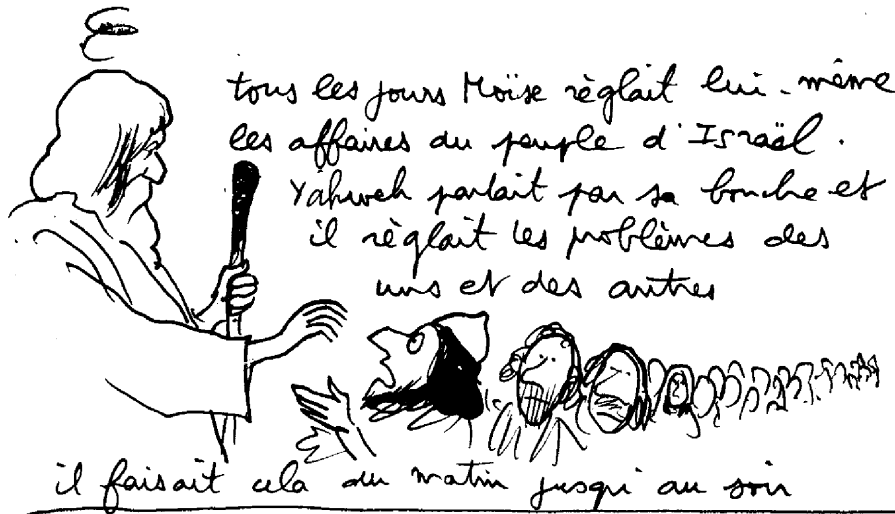 tous les jours Moïse règlait lui-même
les affaires du peuple d'Israël.
Yahweh parlait par sa bouche et
il règlait les problèmes des
uns et des autres
il faisait cela du matin jusqu'au soir